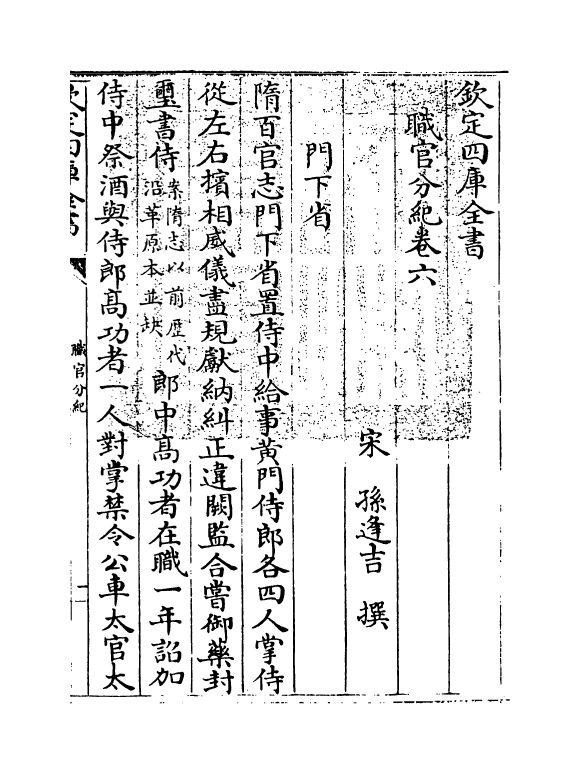 欽定四庫全書
職官分紀卷六
宋　孫逢吉　撰
門下省
隋百官志門下省置侍中給事黃門侍郎各四人掌侍
從左右擯相威儀盡規獻納糾正違闕監合嘗御藥封
璽書侍案隋志以前歴代沿革原本並缺郎中髙功者在職一年詔加
侍中祭酒與侍郎髙功者一人對掌禁令公車太官太
欽定四庫全書
職官分紀
一